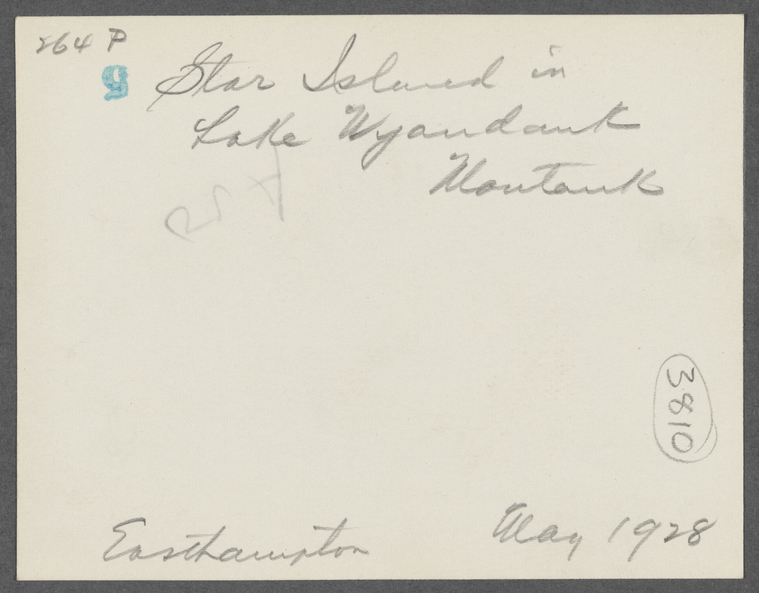 264 P
Star Island in
Lake Wyandank
Montauk
3810
Easthampton May 1928